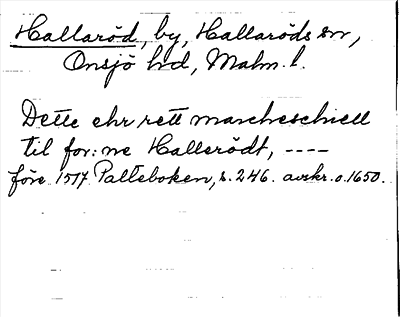 Hallaröd, by, Hallaröds sn,
Onsjö hd, Malm. l.
Dette ehr rett marcheschiell
til for: ne Hallerödt, ----
före 1517 Palteboken, s. 246. avskr. o. 1650.